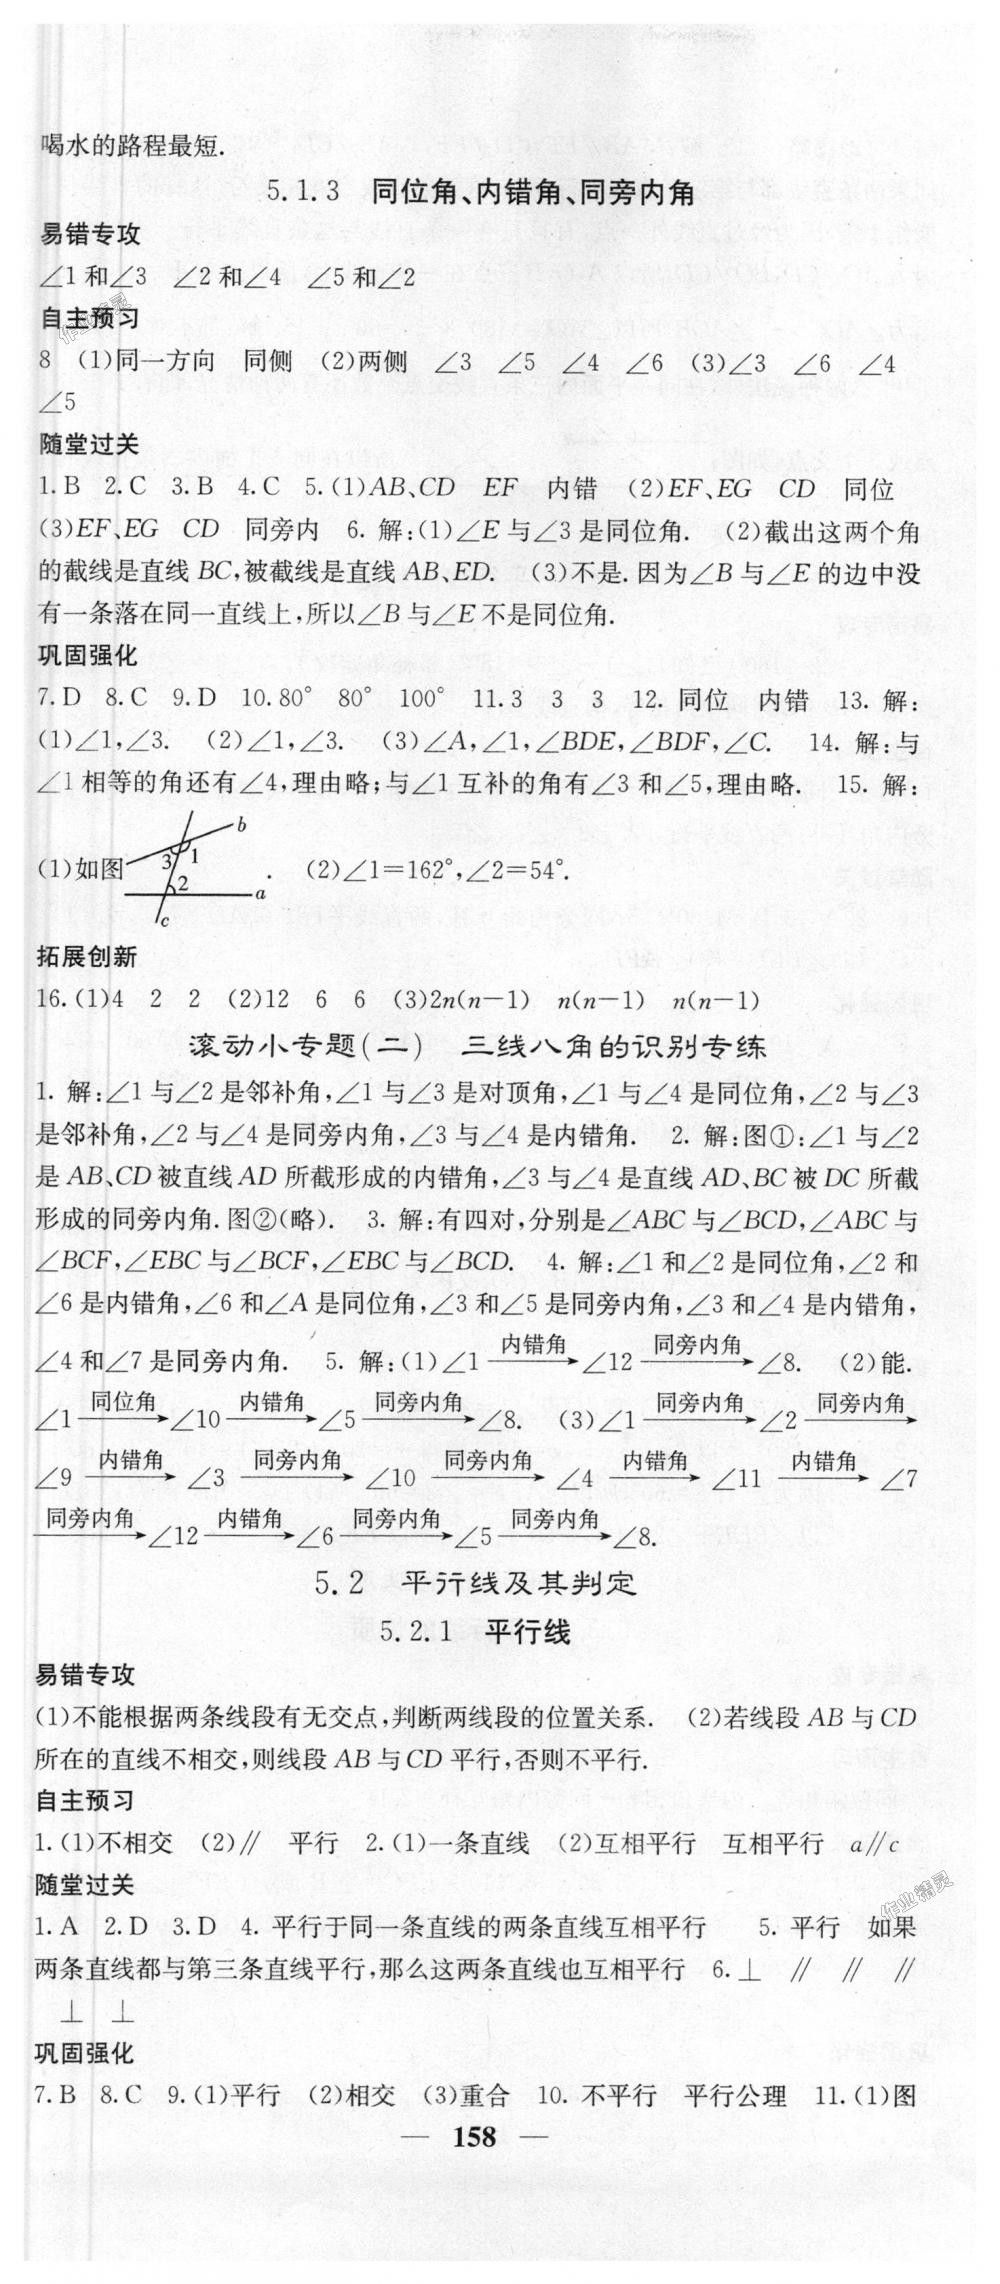 喝水的路程最短.
5.1.3　同位角、内错角、同旁内角
易错专攻
∠1和∠3　∠2和∠4　∠5和∠2
自主预习
8　(1)同一方向　同侧　(2)两侧　∠3　∠5　∠4　∠6　(3)∠3　∠6　∠4
∠5
随堂过关
1.B　2.C　3.B　4.C　5.(1)AB、CD　EF　内错　(2)EF、EG　CD　同位
(3)EF、EG　CD　同旁内　6.解:(1)∠E与∠3是同位角.　(2)截出这两个角
的截线是直线BC,被截线是直线AB、ED.　(3)不是.因为∠B与∠E的边中没
有一条落在同一直线上,所以∠B与∠E不是同位角.
巩固强化
7.D　8.C　9.D　10.80°　80°　100°　11.3　3　3　12.同位　内错　13.解:
(1)∠1,∠3.　(2)∠1,∠3.　(3)∠A,∠1,∠BDE,∠BDF,∠C.　14.解:与
∠1相等的角还有∠4,理由略;与∠1互补的角有∠3和∠5,理由略.　15.解:
(1)如图 b 3 1 2 a c .　(2)∠1=162°,∠2=54°.
拓展创新
16.(1)4　2　2　(2)12　6　6　(3)2n(n-1)　n(n-1)　n(n-1)
滚动小专题(二)　三线八角的识别专练
1.解:∠1与∠2是邻补角,∠1与∠3是对顶角,∠1与∠4是同位角,∠2与∠3
是邻补角,∠2与∠4是同旁内角,∠3与∠4是内错角.　2.解:图①:∠1与∠2
是AB、CD被直线AD所截形成的内错角,∠3与∠4是直线AD、BC被DC所截
形成的同旁内角.图②(略).　3.解:有四对,分别是∠ABC与∠BCD,∠ABC与
∠BCF,∠EBC与∠BCF,∠EBC与∠BCD.　4.解:∠1和∠2是同位角,∠2和
∠6是内错角,∠6和∠A是同位角,∠3和∠5是同旁内角,∠3和∠4是内错角,
∠4和∠7是同旁内角.　5.解:(1)∠1 内错角→ ∠12 同旁内角→ ∠8.　(2)能.
∠1 同位角→ ∠10 内错角→ ∠5 同旁内角→ ∠8.　(3)∠1 同旁内角→ ∠2 同旁内角→
∠9 内错角→ ∠3 同旁内角→ ∠10 同旁内角→ ∠4 内错角→ ∠11 内错角→ ∠7
同旁内角→ ∠12 内错角→ ∠6 同旁内角→ ∠5 同旁内角→ ∠8.
5.2　平行线及其判定
5.2.1　平行线
易错专攻
(1)不能根据两条线段有无交点,判断两线段的位置关系.　(2)若线段AB与CD
所在的直线不相交,则线段AB与CD平行,否则不平行.
自主预习
1.(1)不相交　(2)∥　平行　2.(1)一条直线　(2)互相平行　互相平行　a∥c
随堂过关
1.A　2.D　3.D　4.平行于同一条直线的两条直线互相平行　5.平行　如果
两条直线都与第三条直线平行,那么这两条直线也互相平行　6.⊥　∥　∥　∥
⊥　⊥
巩固强化
7.B　8.C　9.(1)平行　(2)相交　(3)重合　10.不平行　平行公理　11.(1)图
— 158 —
作业精灵
作业精灵